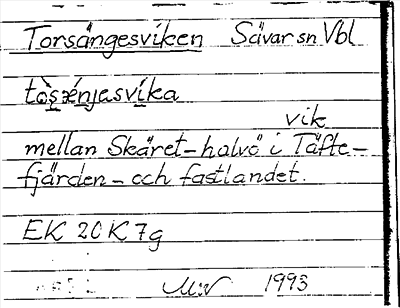 Torsängesviken Sävar sn Vbl
tòṣænjasvíka
vik
mellan Skäret-halvö i Täfte-
fjärden-och fastlandet.
EK 20 K 7g
1993